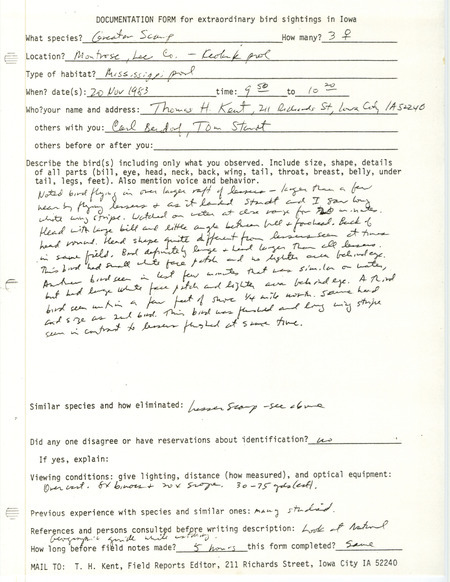 DOCUMENTATION FORM for extraordinary bird sightings in Iowa
What species? Greater Scaup How many? 3 ♀
Location? Montrose, Lee Co. - Keokuk pool
Type of habitat? Mississippi pool
When? date(s): 20 Nov 1983 time: 9 50 to 10 20
Who? your name and address: Thomas H. Kent, 211 Richards St, Iowa City IA 52240
others with you: Carl Bendorf, Tom Stewart
others before or after you:
Describe the bird(s) including only what you observed. Include size, shape, details
of all parts (bill, eye, head, neck, back, wing, tail, throat, breast, belly, under
tail, legs, feet). Also mention voice and behavior.
Noted bird flying in over larger raft of lessers - larger than a few
near by flying lessers & as it landed Stewart and I saw long
white wing stripe. Watched on water at close range for 20 minutes.
Head with large bill and little angle between bill & forehead. Back of
head round. Head shape quite different from lessers seen at times
in same field. Bird definitely larger & head larger than all lessers.
This bird had small white face patch and no lighter area behind eye.
Another bird seen in last few minutes that was similar on water,
but had large white face patch and lighter area behind eye. A third
bird seen within a few feet of shore 1/4 mile north. Same head
and size as 2nd bird. This bird was flushed and long wing stripe
seen in contrast to lessers flushed at same time.
Similar species and how eliminated: Lesser Scaup - see above
Did any one disagree or have reservations about identification? no
If yes, explain:
Viewing conditions: give lighting, distance (how measured), and optical equipment:
Overcast. 8x binocs & 20x scope. 30-75 yds (est).
Previous experience with species and similar ones: many studied.
References and persons consulted before writing description: Look at National
Geographic guide while watching.
How long before field notes made? 5 hours this form completed? Same
MAIL TO: T. H. Kent, Field Reports Editor, 211 Richards Street, Iowa City IA 52240